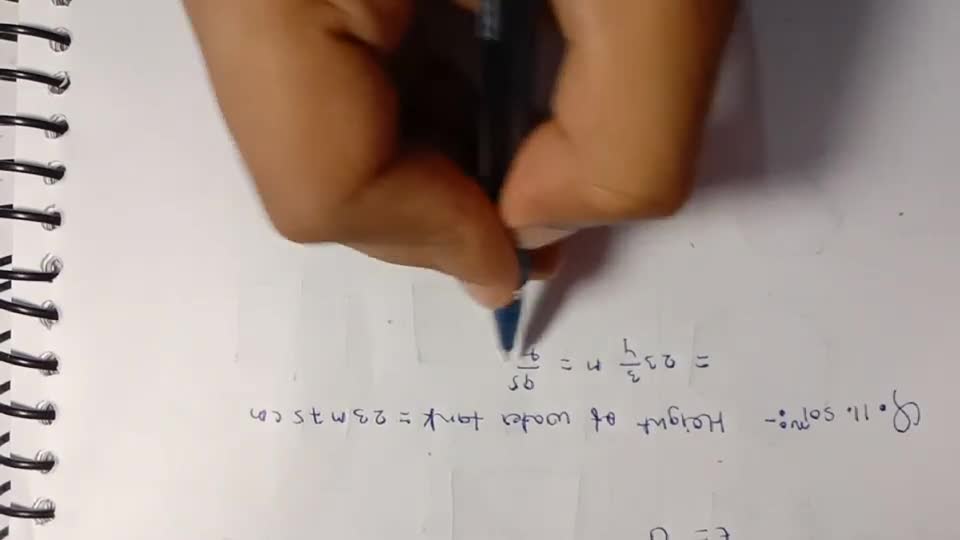 Q.11. Solⁿ:- Height of water tank = 23m 75 cm
= 23 3/4 m = 95/4